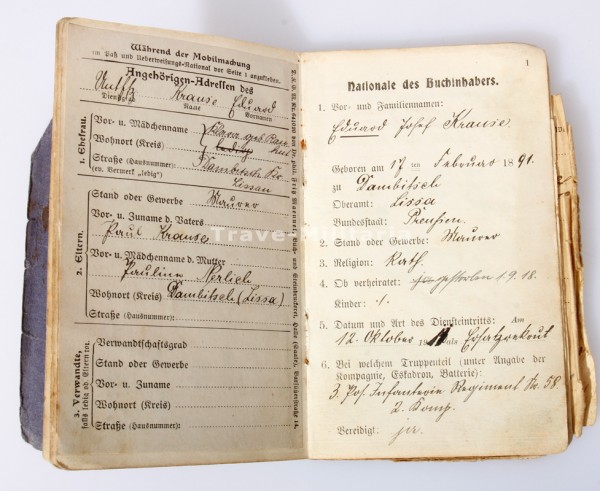 Während der Mobilmachung
im Paß und Ueberweisungs-National vor Seite 1 anzukleben.
Angehörigen-Adressen des
Untffz Krause Eduard
Dienstgrad Name Vornamen
1. Ehefrau.
Vor- u. Mädchenname Klara geb. Ran
Wohnort (Kreis) ledig
Straße (Hausnummer): Dambitsch Kr.
(ev. Vermerk „ledig") Lissa
2. Eltern.
Stand oder Gewerbe Maurer
Vor- u. Zuname d. Vaters
Paul Krause
Vor- u. Mädchennamen d. Mutter
Pauline Nerlich
Wohnort (Kreis) Dambitsch (Lissa)
Straße (Hausnummer):
3. Verwandte,
falls ledig od. Eltern tot.
Verwandtschaftsgrad
Stand oder Gewerbe
Vor- u. Zuname
Wohnort (Kreis)
Straße (Hausnummer):
1
Nationale des Buchinhabers.
1. Vor- und Familiennamen:
Eduard Josef Krause
Geboren am 17 ten Februar 1891.
zu Dambitsch
Oberamt: Lissa
Bundesstaat: Preußen
2. Stand oder Gewerbe: Maurer
3. Religion: Kath.
4. Ob verheiratet: gestorben 1.9.18.
Kinder: 1.
5. Datum und Art des Diensteintritts: Am
12. Oktober 11 als Ersatzrekrut
6. Bei welchem Truppenteil (unter Angabe der
Kompagnie, Eskadron, Batterie):
3. Pos. Infanterie Regiment Nr. 58
2. Komp.
Vereidigt: ja.